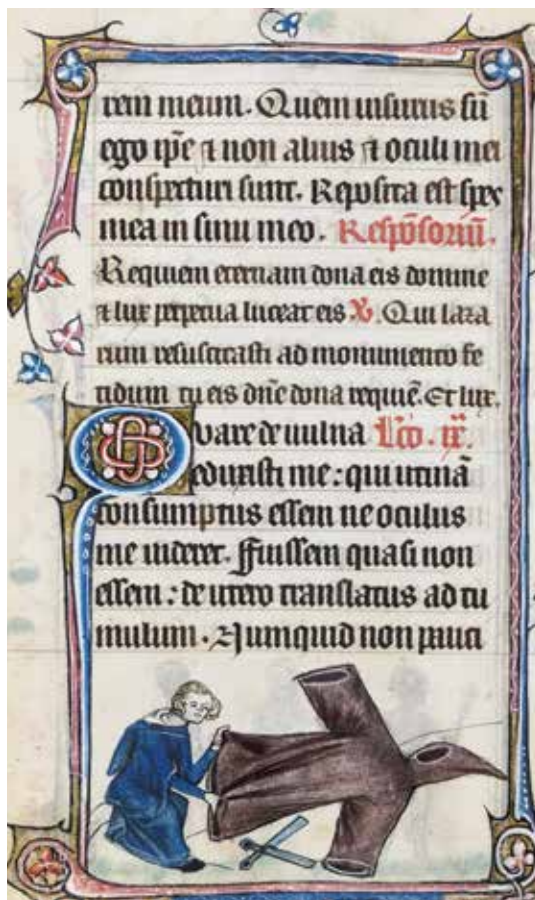 rem meum. Quem uisurus sū
ego ip̄e ⁊ non alius ⁊ oculi mei
conspecturi sunt. Reposita est spes
mea in sinu meo. Respōsoriū.
Requiem eternam dona eis domine
⁊ lux perpetua luceat eis ℣. Qui laza
rum resuscitasti ad monumento fe
tidum tu eis dn̄e dona requiē. Et lux.
Quare de uulua Lc̄o. ix.
eduxisti me: qui utinā
consumptus essem ne oculus
me uideret. Fuissem quasi non
essem: de utero translatus ad tu
mulum. Numquid non pauci